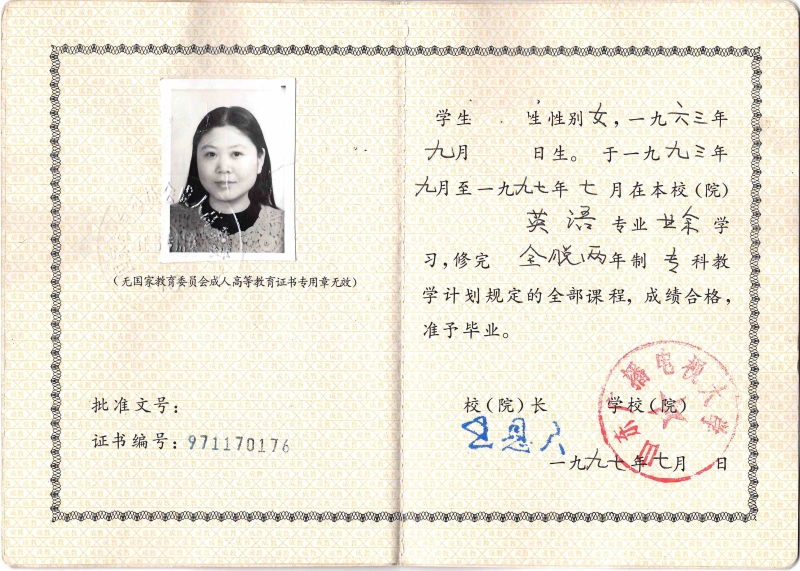 (无国家教育委员会成人高等教育证书专用章无效)
批准文号:
证书编号: 971170176
学生 性别女,一九六三年
九月 日生。于一九九三年
九月至一九九七年七月在本校(院)
英语专业业余学
习,修完 年制专科教
学计划规定的全部课程,成绩合格,
准予毕业。
校(院)长 学校(院)
山东广播电视大学
一九九七年七月 日